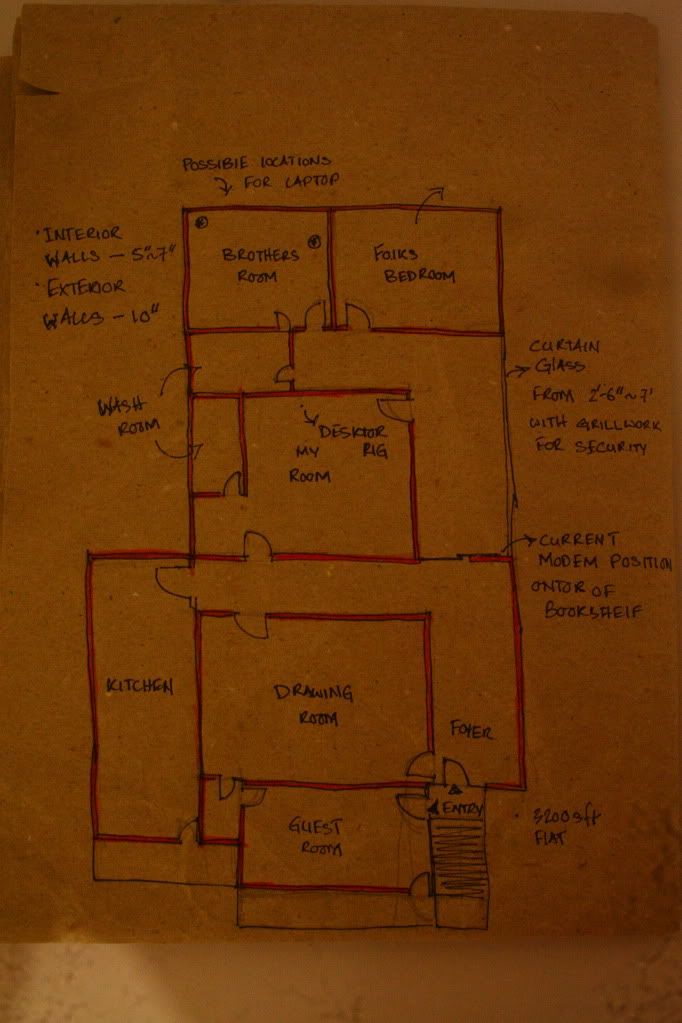 POSSIBLE LOCATIONS
FOR LAPTOP
• INTERIOR
WALLS – 5"~7"
• EXTERIOR
WALLS – 10"
BROTHERS
ROOM
FOLKS
BEDROOM
CURTAIN
GLASS
FROM 2'-6"~7'
WITH GRILLWORK
FOR SECURITY
WASH
ROOM
DESKTOP
RIG
MY
ROOM
CURRENT
MODEM POSITION
ONTOP OF
BOOKSHELF
KITCHEN
DRAWING
ROOM
FOYER
ENTRY
GUEST
ROOM
• 3200 sft
FLAT